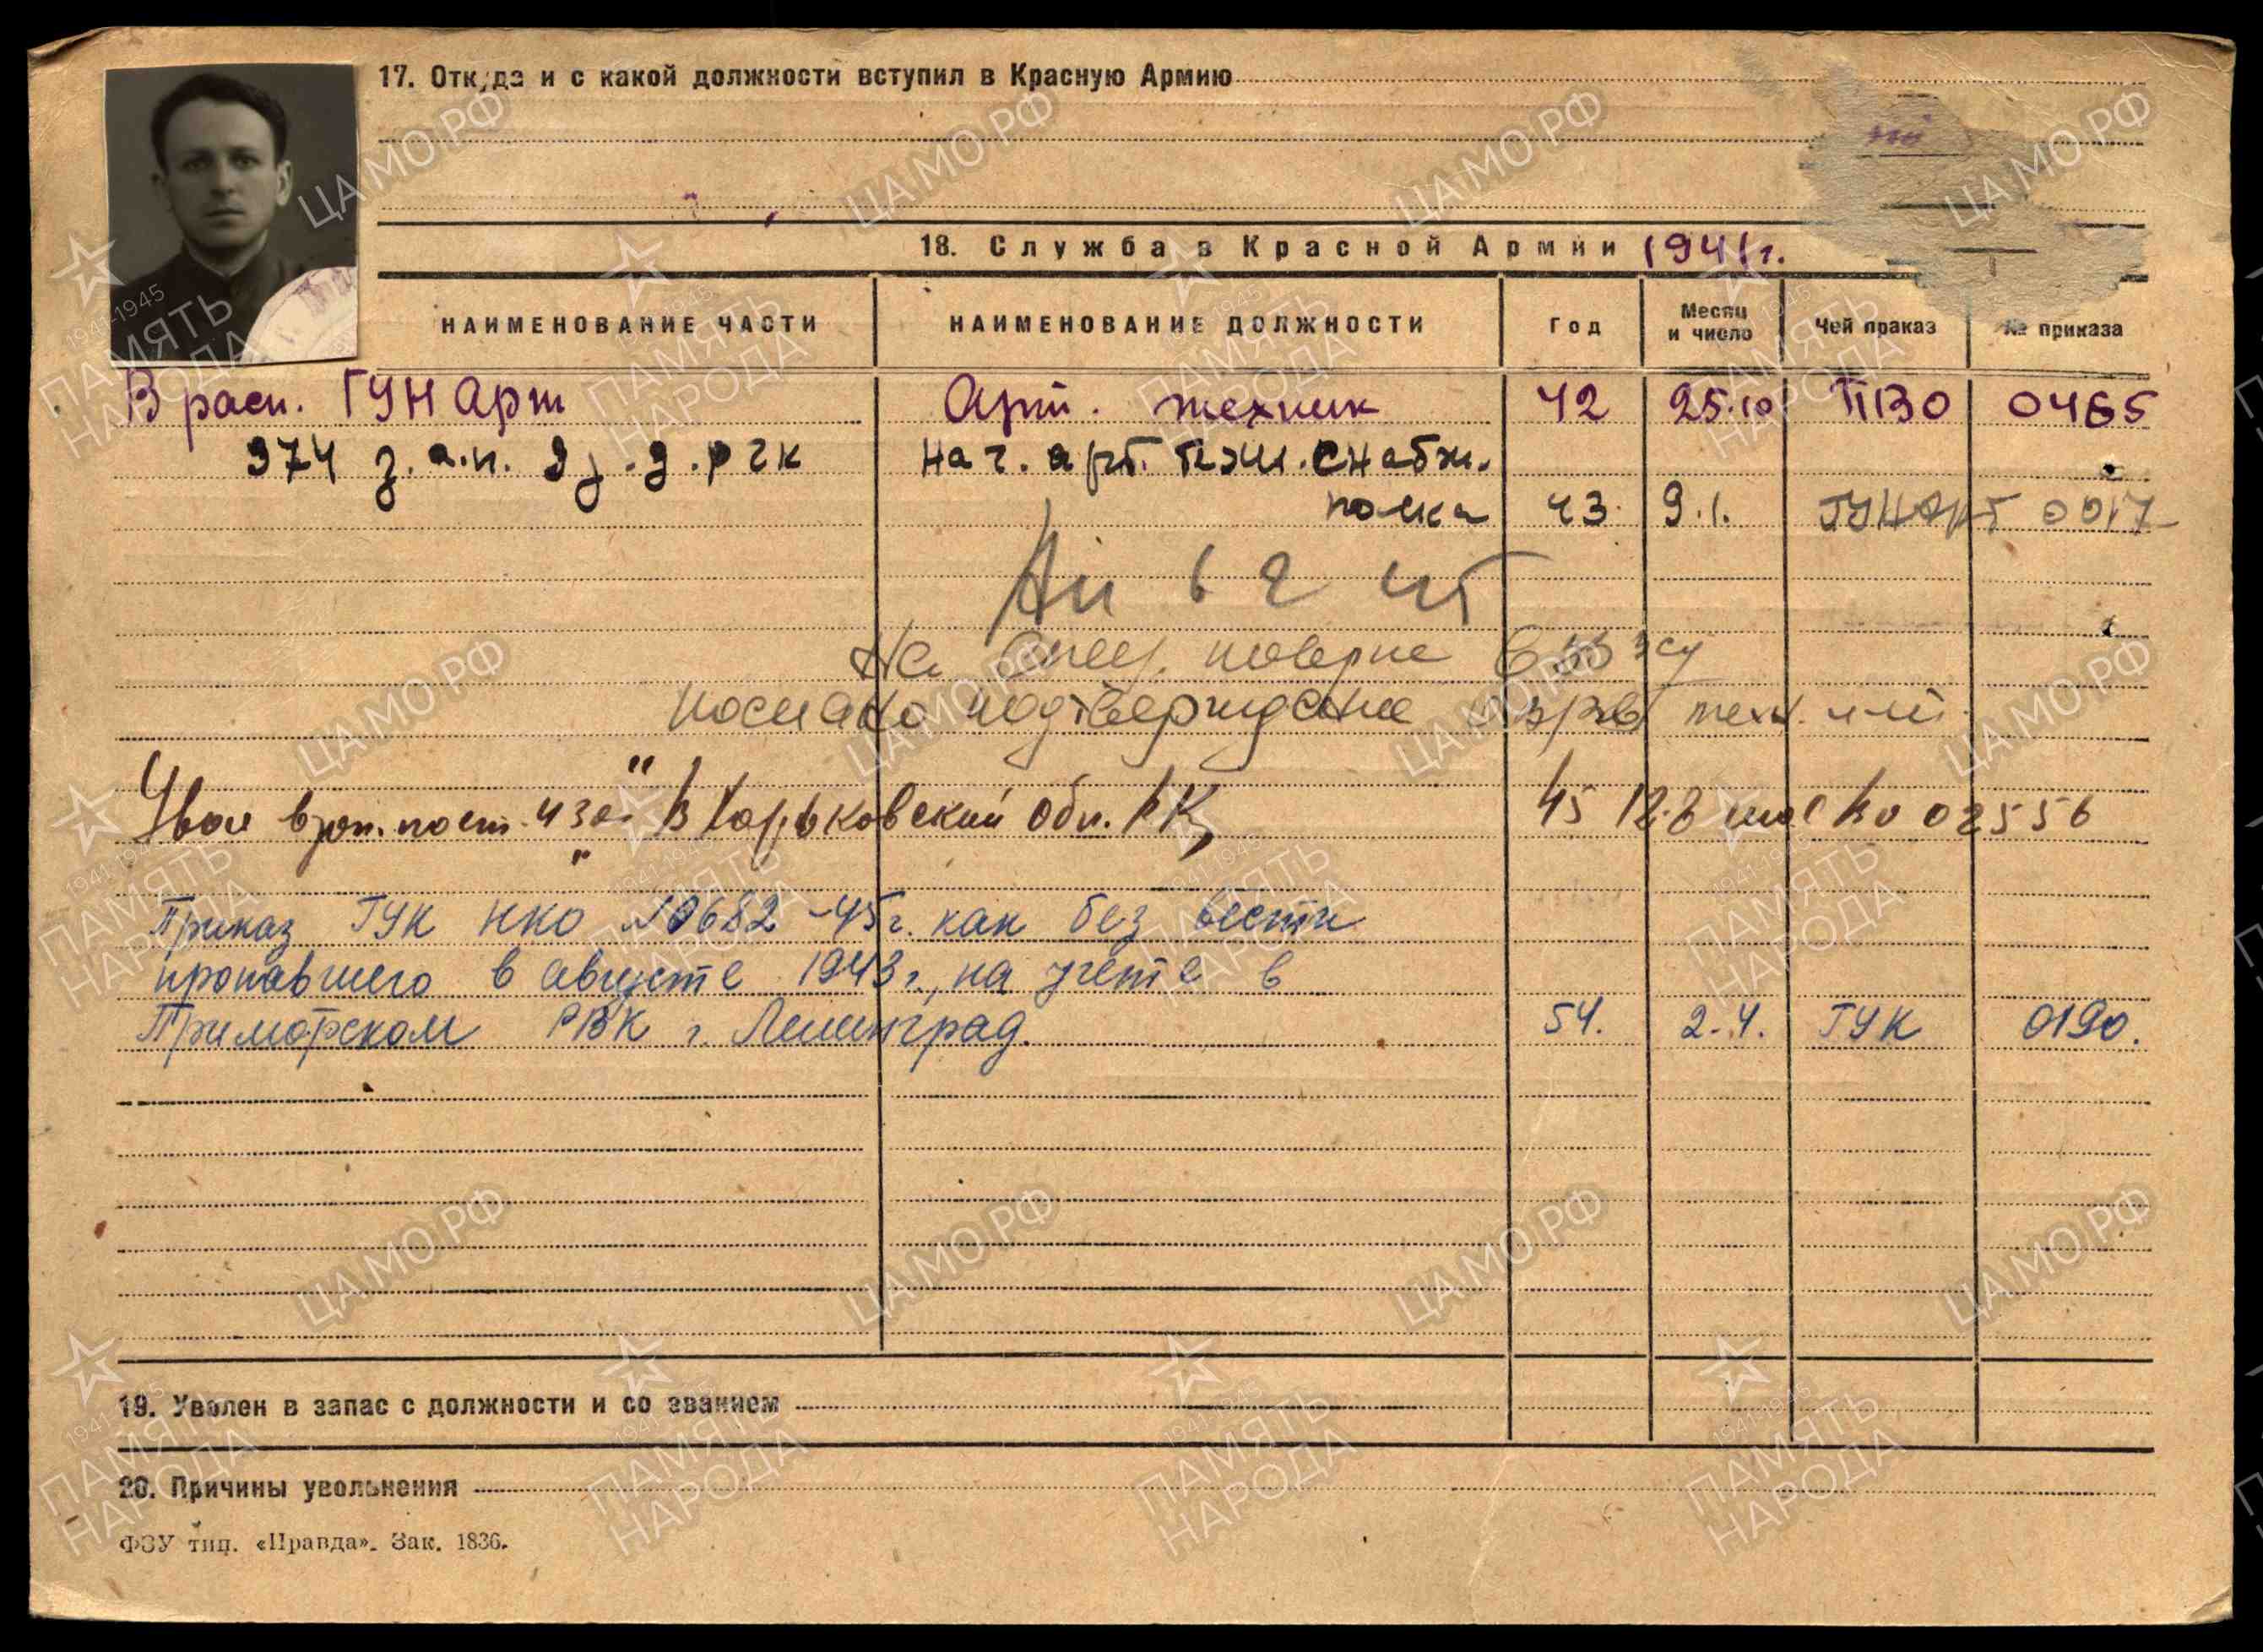 17. Откуда и с какой должности вступил в Красную Армию
18. Служба в Красной Армии 1941 г.
НАИМЕНОВАНИЕ ЧАСТИ НАИМЕНОВАНИЕ ДОЛЖНОСТИ Год Месяц и число Чей приказ № приказа
В расп. ГУНАрт Арт. техник 42 25.10 0465
974 з.а.п. РГК Нач. арт. снабж.
полка 43 9.1. ГУНАРТ 0017
На спец. поверке в
послано подтверждение тех.
Увол в зап. по ст. 43 "а" в Харьковский Обл. ВК, 45 02556
Приказ ГУК НКО № 0682-45г. как без вести
пропавшего в августе 1943 г., на учете в
Приморском РВК г. Ленинград. 54. 2.4. ГУК 0190.
19. Уволен в запас с должности и со званием
20. Причины увольнения
ФЗУ тип. «Правда». Зак. 1836.
ЦАМО РФ
1941-1945
ПАМЯТЬ
НАРОДА